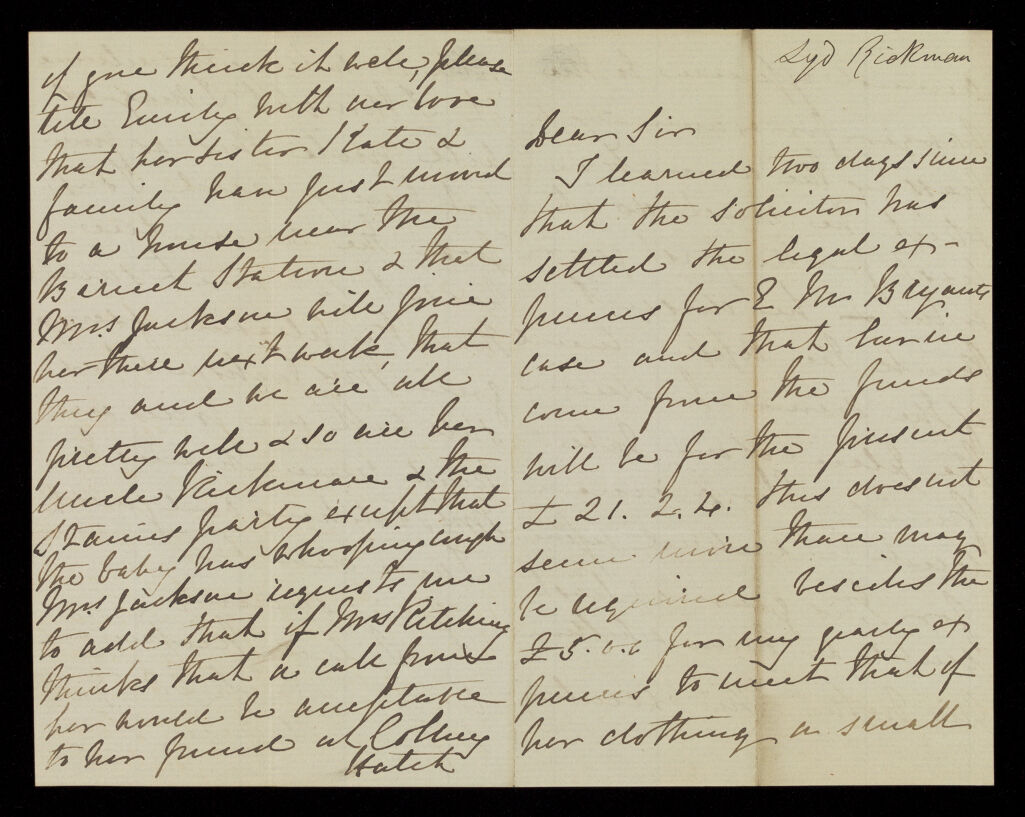 Lyd Rickman
Dear Sir
I learned two days since
that the Solicitor has
settled the legal ex-
penses for E M Bryants
case and that her in
come from the funds
will be for the present
£21.2.4. this does not
seem more than may
be required besides the
£5.0.0 for my yearly ex
penses to meet that of
her clothing a small
if you think it well, please
tell Emily with our love
that her sister Kate &
family have just moved
to a house near the
Barnet Station & that
Mrs Jackson will join
her there next week, that
they and we are all
pretty well & so are her
Uncle Rickman & the
Staines party except that
the baby has whooping cough
Mrs Jackson requests me
to add that if Mrs Pitching
thinks that a call from
her would be acceptable
to her friend at Colney
Hatch